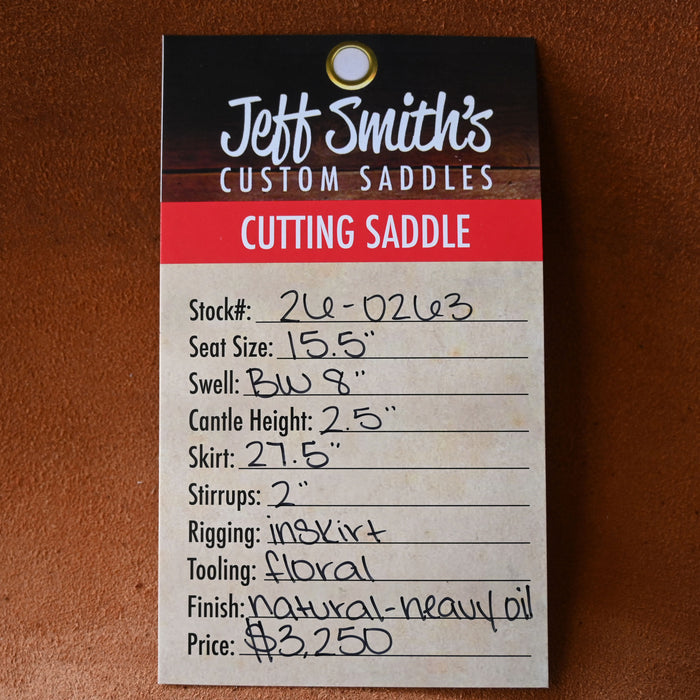 Jeff Smith's
CUSTOM SADDLES
CUTTING SADDLE
Stock#: 26-0263
Seat Size: 15.5"
Swell: BW 8"
Cantle Height: 2.5"
Skirt: 27.5"
Stirrups: 2"
Rigging: inskirt
Tooling: floral
Finish: natural-heavy oil
Price: $3,250